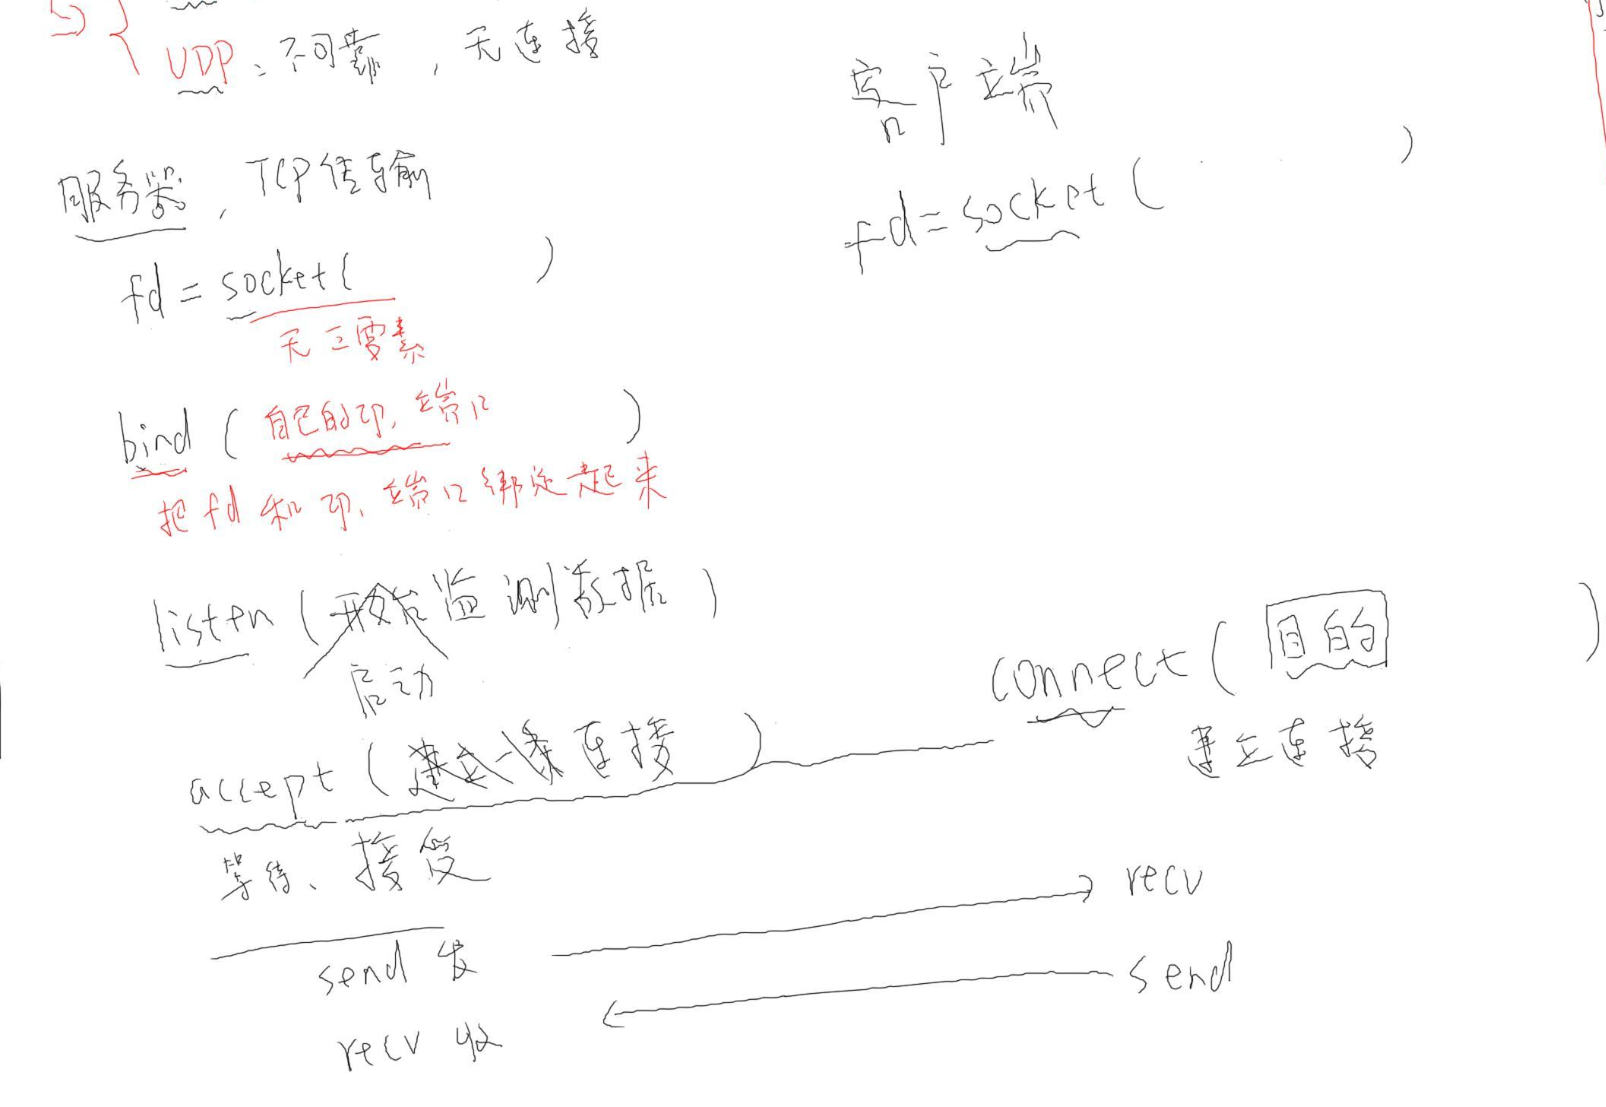 UDP:不可靠,无连接
服务器,TCP传输
fd = socket( )
无三要素
bind ( 自己的IP,端口 )
把fd和IP,端口绑定起来
listen ( 开始监测数据 )
启动
accept ( 建立一条连接 )
等待、接受
send 发
recv 收
客户端
fd = socket ( )
connect ( 目的 )
建立连接
recv
send